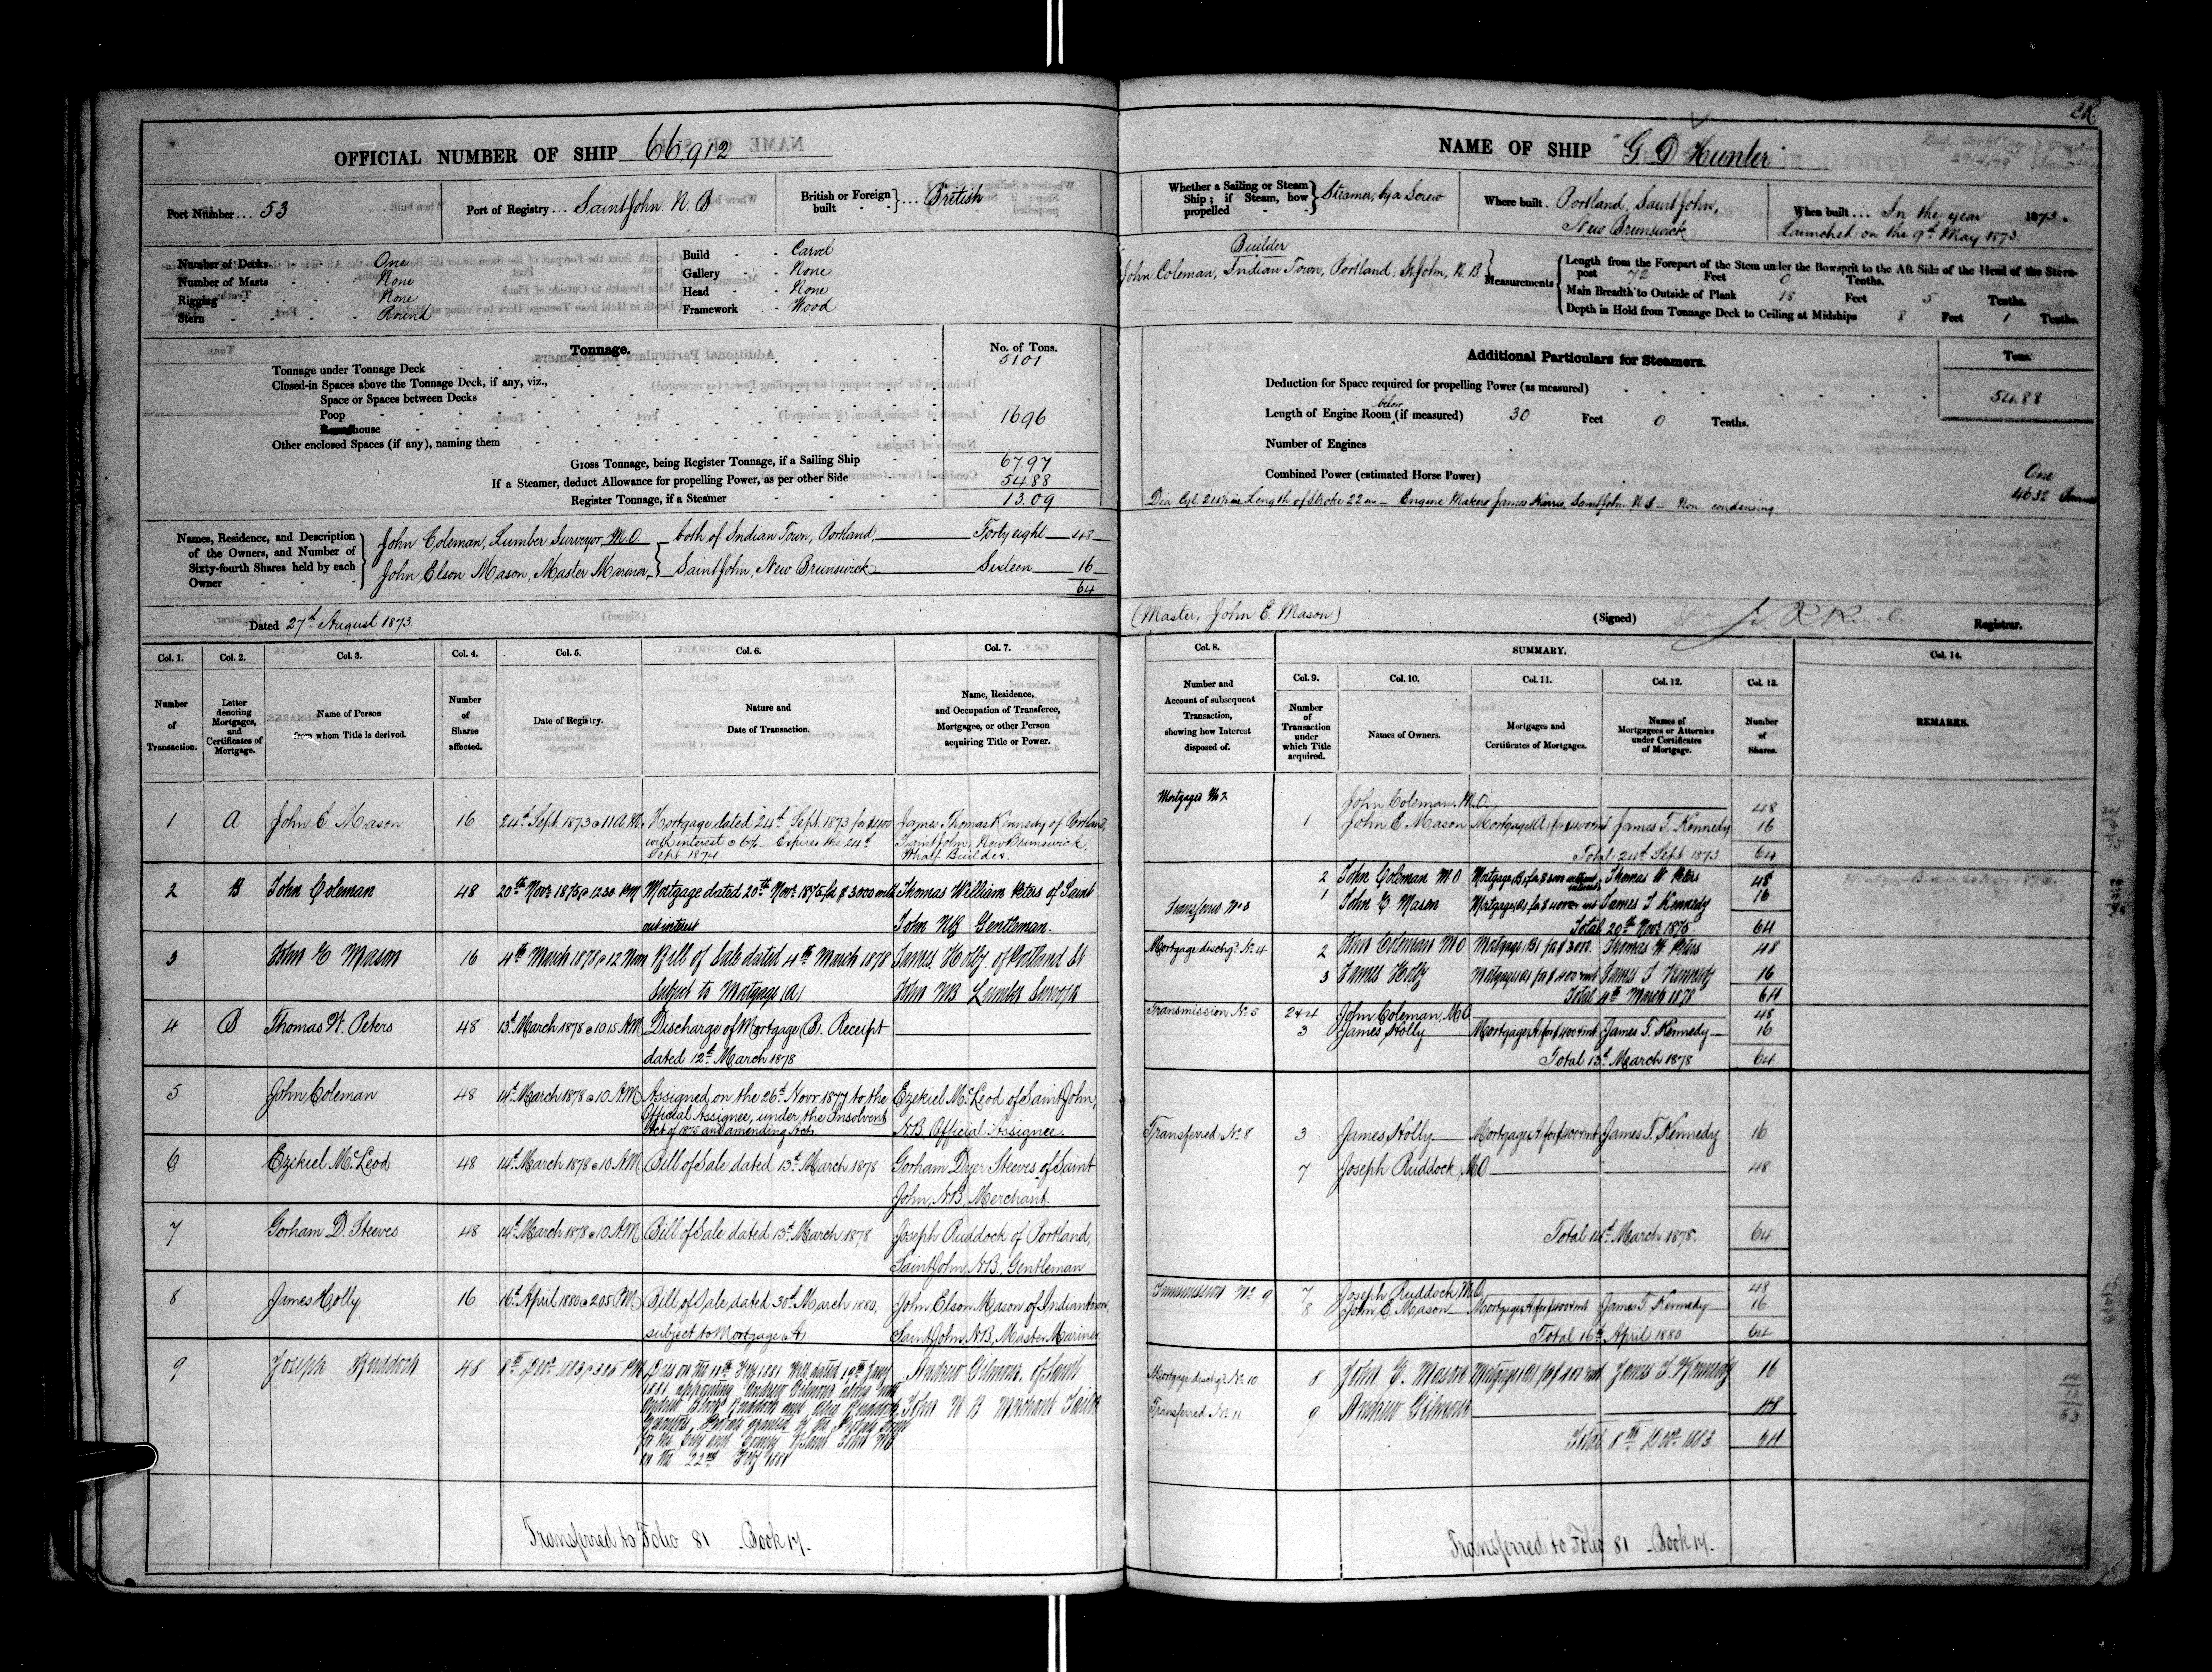 OFFICIAL NUMBER OF SHIP 66,912
Port Number... 53
Port of Registry... Saint John. N. B
British or Foreign built } ... British
Number of Decks - One
Number of Masts - None
Rigging - None
Stern - Round
Build - Carvel
Gallery - None
Head - None
Framework - Wood
Tonnage.
No. of Tons.
Tonnage under Tonnage Deck 5101
Closed-in Spaces above the Tonnage Deck, if any, viz.,
Space or Spaces between Decks
Poop 1696
house
Other enclosed Spaces (if any), naming them
Gross Tonnage, being Register Tonnage, if a Sailing Ship 67.97
If a Steamer, deduct Allowance for propelling Power, as per other Side 54.88
Register Tonnage, if a Steamer 13.09
Names, Residence, and Description of the Owners, and Number of Sixty-fourth Shares held by each Owner
John Coleman, Lumber Surveyor M.O. } both of Indian Town, Portland, Forty eight 48
John Elson Mason, Master Mariner, } Saint John, New Brunswick Sixteen 16
64
Dated 27th August 1873
Col. 1. Number of Transaction.
Col. 2. Letter denoting Mortgages, and Certificates of Mortgage.
Col. 3. Name of Person from whom Title is derived.
Col. 4. Number of Shares affected.
Col. 5. Date of Registry.
Col. 6. Nature and Date of Transaction.
Col. 7. Name, Residence, and Occupation of Transferee, Mortgagee, or other Person acquiring Title or Power.
1 A John E Mason 16 24th Sept. 1873 @ 11 A.M. Mortgage dated 24th Sept. 1873 for $400 James Thomas Kennedy of Portland,
with interest @ 6% Expires the 24th Saint John, New Brunswick,
Sept. 1874. Wharf Builder.
2 B John Coleman 48 20th Novr 1875 @ 12.30 PM Mortgage dated 20th Novr 1875 for $3000 with Thomas William Peters of Saint
out interest John NB Gentleman.
3 John E Mason 16 4th March 1878 @ 12 Noon Bill of Sale dated 4th March 1878 James Holly of Portland St
Subject to Mortgage (A) John NB Lumber Surveyor
4 B Thomas W. Peters 48 13th March 1878 @ 10.15 A.M. Discharge of Mortgage (B). Receipt
dated 12th March 1878
5 John Coleman 48 14th March 1878 @ 10 A.M. Assigned on the 26th Novr 1877 to the Ezekiel McLeod of Saint John,
Official Assignee, under the Insolvent
Act of 1875 and amending Acts N.B. Official Assignee.
6 Ezekiel McLeod 48 14th March 1878 @ 10 A.M. Bill of Sale dated 13th March 1878 Gorham Dyer Steeves of Saint
John, N.B. Merchant.
7 Gorham D. Steeves 48 14th March 1878 @ 10 A.M. Bill of Sale dated 13th March 1878 Joseph Ruddock of Portland,
Saint John, N.B., Gentleman
8 James Holly 16 16th April 1880 @ 2.05 P.M. Bill of Sale dated 30th March 1880, John Elson Mason of Indiantown,
subject to Mortgage A Saint John, N.B., Master Mariner
9 Joseph Ruddock 48 8th Decr 1883 @ 3.05 P.M. Died on the 11th Feby 1881 Will dated 19th Jany Andrew Gilmour of Saint
1881 appointing Andrew Gilmour John N B Merchant Tailor
Executors. Probate granted by the Probate Court
for the City and County of Saint John NB
on the 22nd Feby 1881
Transferred to Folio 81 - Book 17.
NAME OF SHIP "G D Hunter"
Whether a Sailing or Steam Ship; if Steam, how propelled } Steamer, by a Screw
Where built. Portland, Saint John, New Brunswick
When built... In the year 1873.
Launched on the 9th May 1873.
Builder
John Coleman, Indian Town, Portland, St John, N. B.
Measurements
Length from the Forepart of the Stem under the Bowsprit to the Aft Side of the Head of the Stern-
post 72 Feet 0 Tenths.
Main Breadth to Outside of Plank 18 Feet 5 Tenths.
Depth in Hold from Tonnage Deck to Ceiling at Midships 8 Feet 1 Tenths.
Additional Particulars for Steamers.
Tons.
Deduction for Space required for propelling Power (as measured) 54.88
Length of Engine Room below (if measured) 30 Feet 0 Tenths.
Number of Engines One
Combined Power (estimated Horse Power) 46.32
Length of Stroke 22 in - Engine Makers James Harris, Saint John. N.B - Non condensing
(Master, John E. Mason)
(Signed)
Registrar.
Col. 8. Number and Account of subsequent Transaction, showing how Interest disposed of.
SUMMARY.
Col. 9. Number of Transaction under which Title acquired.
Col. 10. Names of Owners.
Col. 11. Mortgages and Certificates of Mortgages.
Col. 12. Names of Mortgagees or Attornies under Certificates of Mortgage.
Col. 13. Number of Shares.
Col. 14. REMARKS.
Mortgages No 2 John Coleman. M.O. 48
1 John E Mason Mortgage A for $400 & int James T. Kennedy 16
Total 24th Sept 1873 64
2 John Coleman MO Mortgage B for $3000 without interest Thomas W Peters 48
Transfers No 3 1 John E. Mason Mortgage A for $400 & int James T Kennedy 16
Total 20th Novr 1875. 64
Mortgage dischgd No. 4 2 John Coleman MO Mortgage B for $3000. Thomas W. Peters 48
3 James Holly Mortgage A for $400 & int James T Kennedy 16
Total 4th March 1878 64
Transmission No. 5 2 & 4 John Coleman, M.O 48
3 James Holly Mortgage A for $400 & int James T. Kennedy 16
Total 13th March 1878 64
Transferred No. 8 3 James Holly Mortgage A for $400 & int James T. Kennedy 16
7 Joseph Ruddock, M.O 48
Total 14th March 1878. 64
Transmission No 9 7 Joseph Ruddock M.O. 48
8 John E. Mason Mortgage A for $400 & int James T. Kennedy 16
Total 16th April 1880 64
Mortgage dischgd No. 10 8 John E. Mason Mortgage A for $400 & int James T. Kennedy 16
Transferred No. 11 9 Andrew Gilmour 48
Total 8th Decr 1883 64
Transferred to Folio 81 - Book 17.